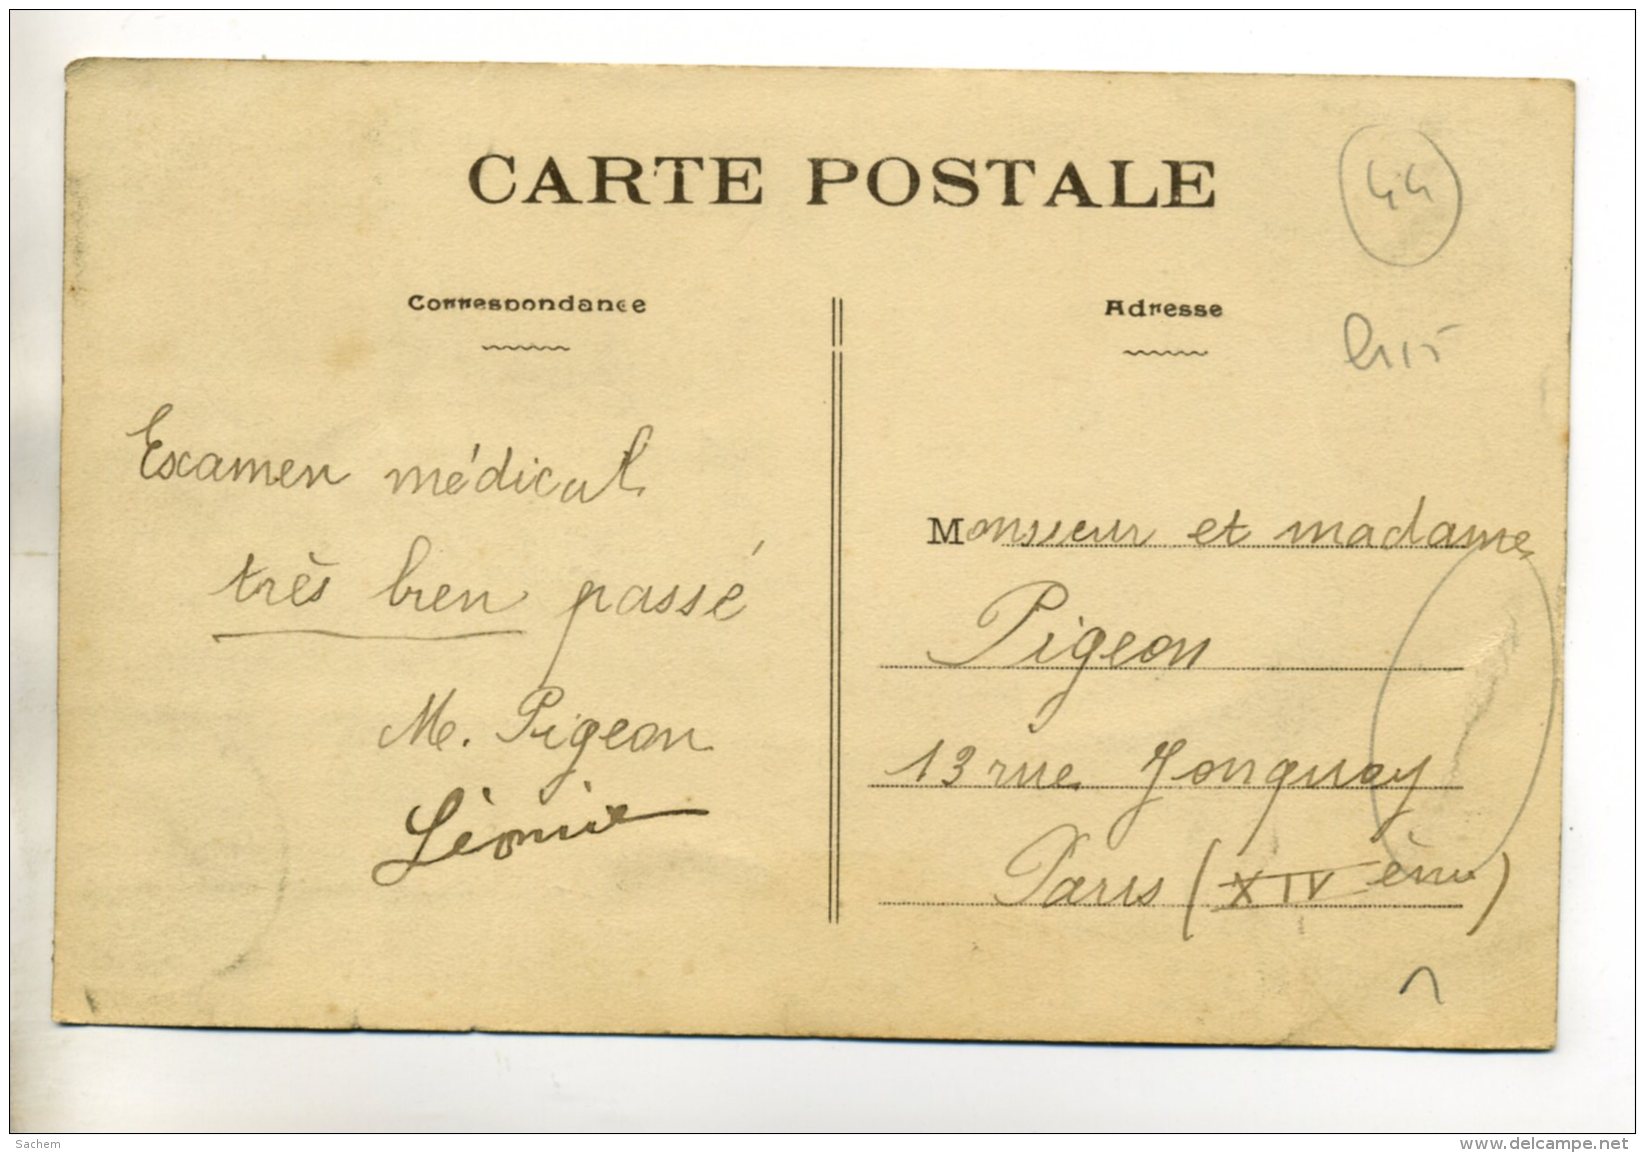 CARTE POSTALE
44
Correspondance
Adresse
Examen médical
très bien passé
M. Pigeon
Léonie
Monsieur et madame
Pigeon
13 rue Jonquoy
Paris (XIVème)
Sachem
www.delcampe.net